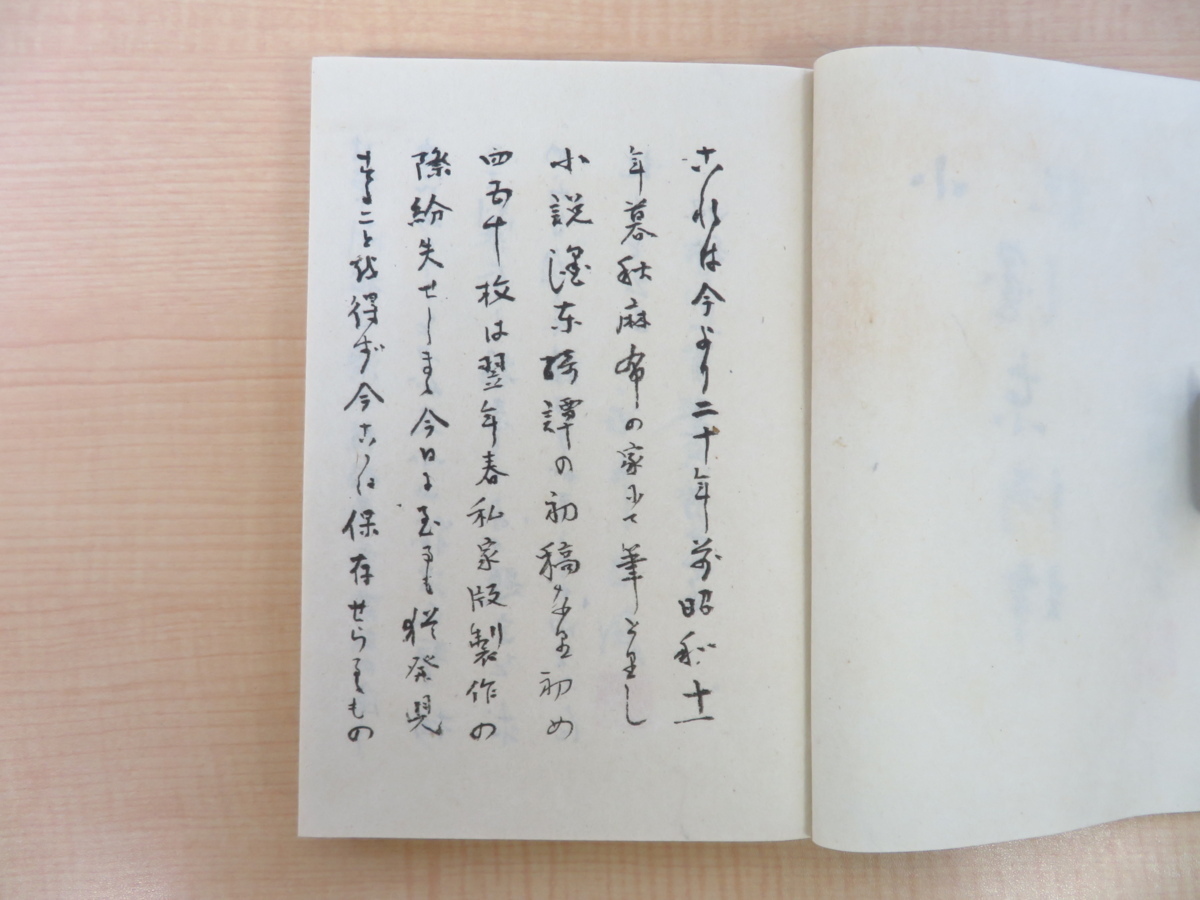 これは今より二十年前昭和十一
年暮秋麻布の家にて筆とりし
小説濹東綺譚の初稿なり初め
四五十枚は翌年春私家版製作の
際紛失せしまゝ今日に至るも猶発見
することを得ず今こゝに保存せらるゝもの